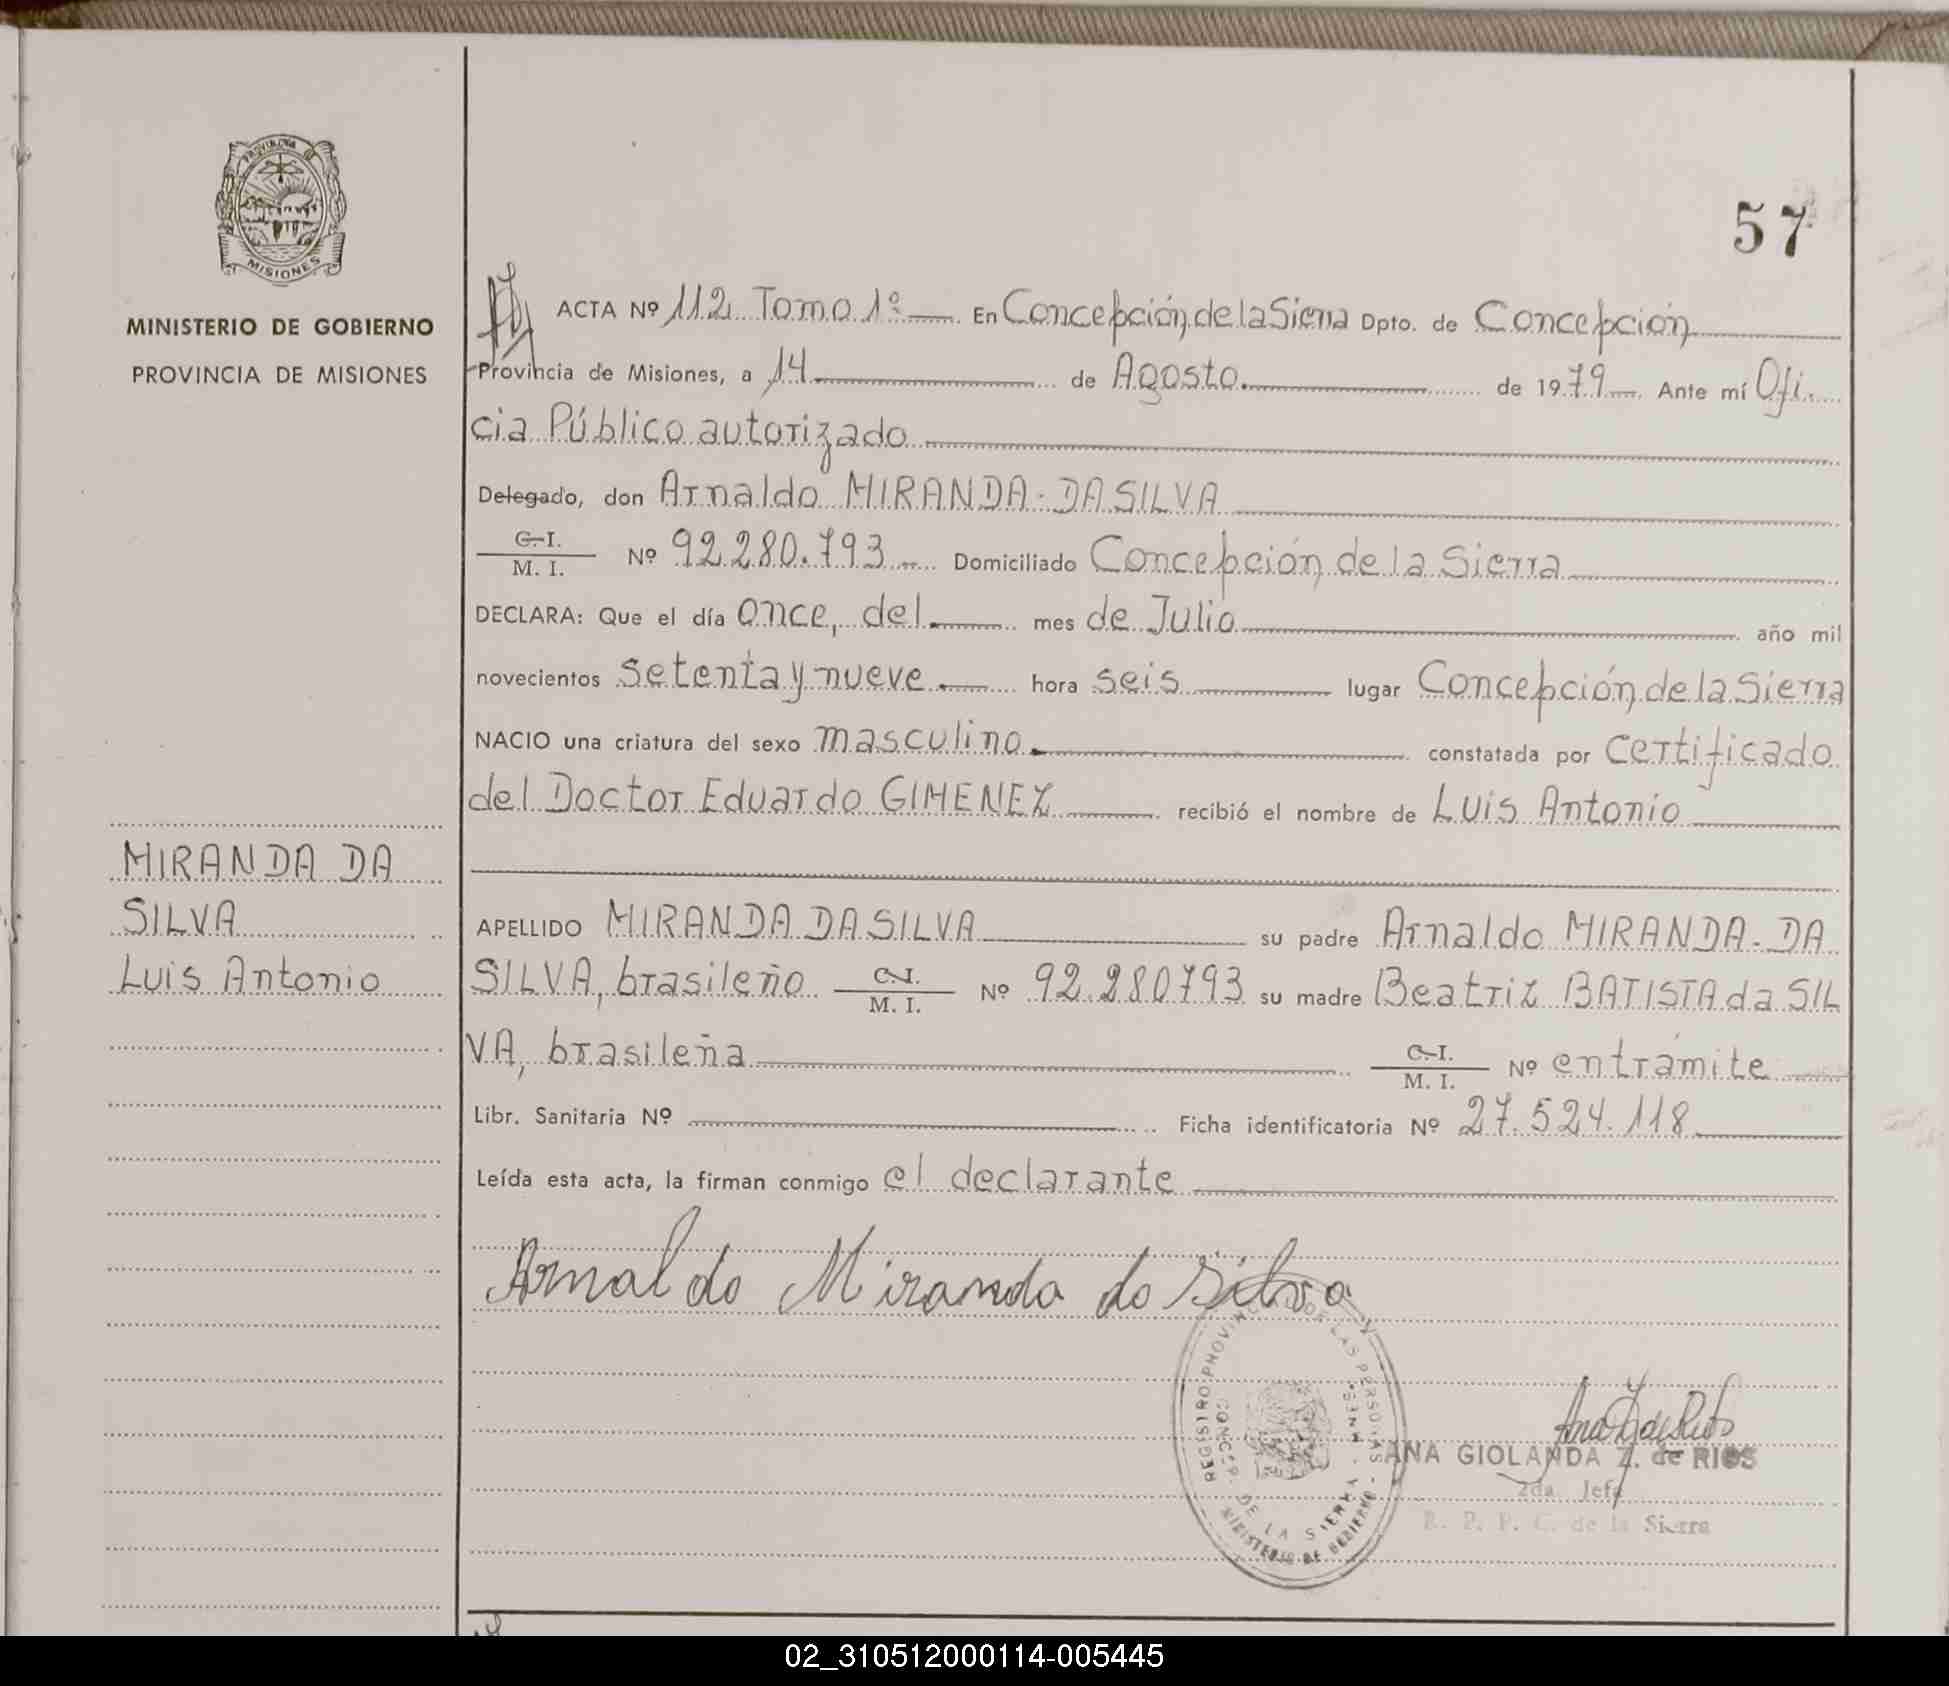 57
PROVINCIA
MISIONES
MINISTERIO DE GOBIERNO
PROVINCIA DE MISIONES
ACTA Nº 112 Tomo 1º En Concepción de la Sierra Dpto. de Concepción
Provincia de Misiones, a 14 de Agosto de 1979 Ante mí Ofi
cia Público autorizado
Delegado, don Arnaldo MIRANDA-DA SILVA
C.I. / M. I. Nº 92.280.793 Domiciliado Concepción de la Sierra
DECLARA: Que el día once, del mes de Julio año mil
novecientos setenta y nueve hora seis lugar Concepción de la Sierra
NACIO una criatura del sexo masculino constatada por certificado
del Doctor Eduardo GIMENEZ recibió el nombre de Luis Antonio
MIRANDA DA
SILVA
Luis Antonio
APELLIDO MIRANDA DA SILVA su padre Arnaldo MIRANDA-DA
SILVA, brasileño C.I. / M. I. Nº 92.280793 su madre Beatriz BATISTA da SIL
VA, brasileña C.I. / M. I. Nº en trámite
Libr. Sanitaria Nº Ficha identificatoria Nº 27.524.118
Leída esta acta, la firman conmigo el declarante
Arnaldo Miranda da Silva
REGISTRO PROVINCIAL DE LAS PERSONAS - MINISTERIO DE GOBIERNO
CONCEP. DE LA SIERRA - MNES.
ANA GIOLANDA Z. de RIOS
2da. Jefa
R. P. P. C. de la Sierra
02_310512000114-005445